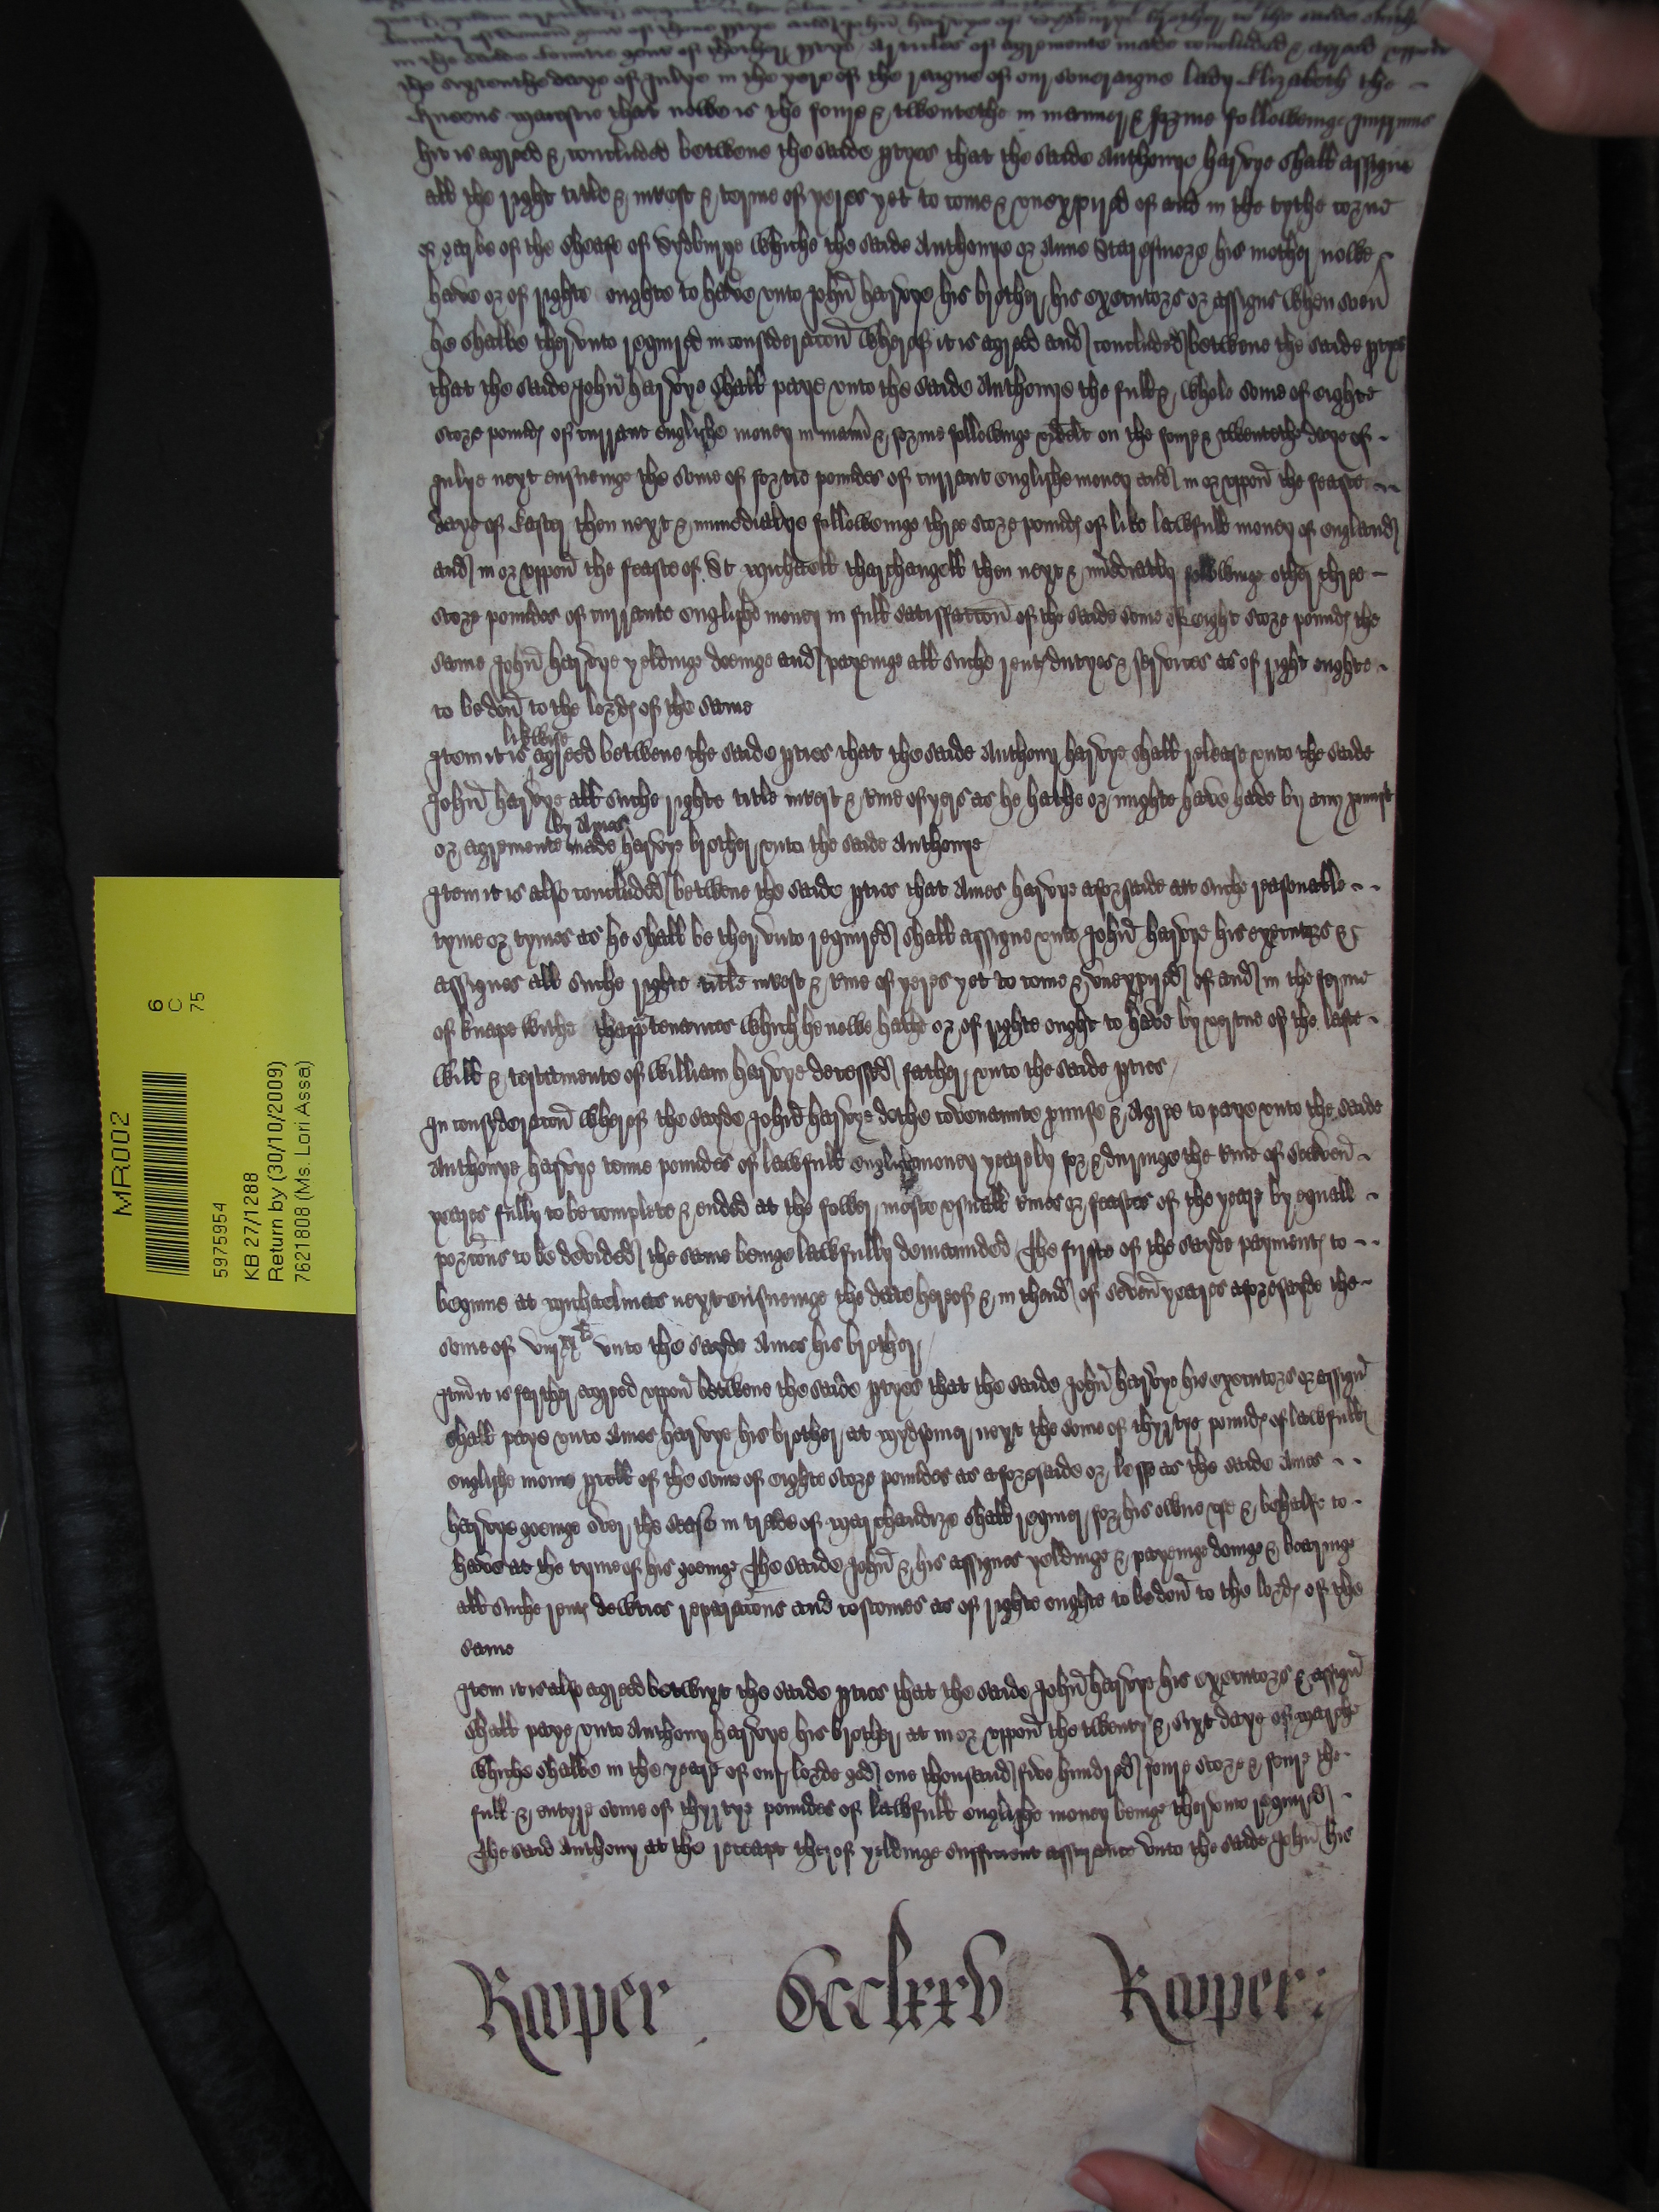 in the saide Countie gent of thother ptye Articles of agremente made concluded & agreed uppon
the syxtenthe daye of Julye in the yere of the raigne of our soveraigne Lady Elizabeth the
Queens maiestie that nowe is the foure & twentethe in manner & forme followeinge Imprimis
hit is agreed & concluded betwene the saide ptyes that the saide Anthonye harvye shall assigne
all the right title & intrest & terme of yeres yet to come & unexpired of and in the tythe corne
or garbe of the sheafe of Sydburye whiche the saide Anthonye or Anne his mother nowe
have or of righte oughte to have unto John harvye his brother his executors or assigns when soevr
he shalbe therunto required in consideracon wherof it is agreed and concluded betwene the saide ptyes
that the saide John harvye shall paye unto the saide Anthonye the full & whole some of eighte
score pounds of currant englishe money in mann & forme followinge videlt on the foure & twentethe daye of
Julye next ensueinge the some of fortie poundes of currant englishe money and in or uppon the feaste
daye of Easter then next & immediatlye followeinge three score pounds of like lawfull money of england
and in or uppon the feaste of St Michaell tharchangell then next & imediatly followinge other three
score poundes of currante englishe money in full satisfaccon of the saide some of eight score pounds the
same John harvye yeldinge doeinge and payeinge all suche rents dutyes & services as of right oughte
to be don to the lords of the same
likwise
Item it is agreed betwene the saide pties that the saide Anthony harvye shall release unto the saide
John harvye all suche righte title intrest & tme of yers as he hathe or mighte have hade by any pmise
by Ames
or agremente made harvye brother unto the saide Anthonye
Item it is also concluded betwene the saide pties that Ames harvye aforesaide att suche reasonable
tyme or tymes as he shall be therunto required shall assigne unto John harvye his executors &
assignes all suche righte title intrest & tme of yeres yet to come & unexpyred of and in the ferme
of knape withe thapptenances which he nowe hathe or of righte ought to have by vertue of the laste
will & testamente of William harvye decessed father unto the saide pties
In consyderacon wherof the sayde John harvye dothe covenannte pmise & Agree to paye unto the saide
Anthonye harvye tenne poundes of lawfull englishe money yearely for & duringe the tme of seaven
yeares fully to be complete & ended at the fower moste usuall tmes or feastes of the yeare by equall
porcons to be devided the same beinge lawfully demaunded The firste of the sayde payments to
beginne at Mychaelmas next ensueinge the date hereof & in thend of seven yeares aforesayde the
some of unto the sayde Ames his brother
Itm it is farther agreed uppon betwene the saide ptyes that the saide John harvye his executors or assigns
shall paye unto Ames harvye his brother at mydsomer next the some of thyrtye pounds of lawfull
englishe monie pcell of the some of eighte score poundes as aforesaide or lesse as the saide Ames
harvye goeinge over the sease in trade of marchandize shall requier for his owne use & behalfe to
have at the tyme of his goeinge The saide John & his assignes yeldinge & payeinge doinge & bearinge
all suche rents dewties reparacons and costomes as of righte oughte to be don to the lords of the
same
Item it is also agreed betwixt the saide pties that the saide John harvye his executors & assigns
shall paye unto Anthony harvye his brother at in or uppon the twenty & sixt daye of marche
whiche shalbe in the yeare of our lorde god one thousand five hundred foure score & foure the
full & entyre some of thyrtye poundes of lawfull englishe money beinge therunto required
The said Anthony at the receapt therof yeldinge sufficient assurance unto the saide John his
Roper CCClxxv Roper
MR002
6
C
75
5975954
KB 27/1288
Return by (30/10/2009)
7621808 (Ms. Lori Assa)